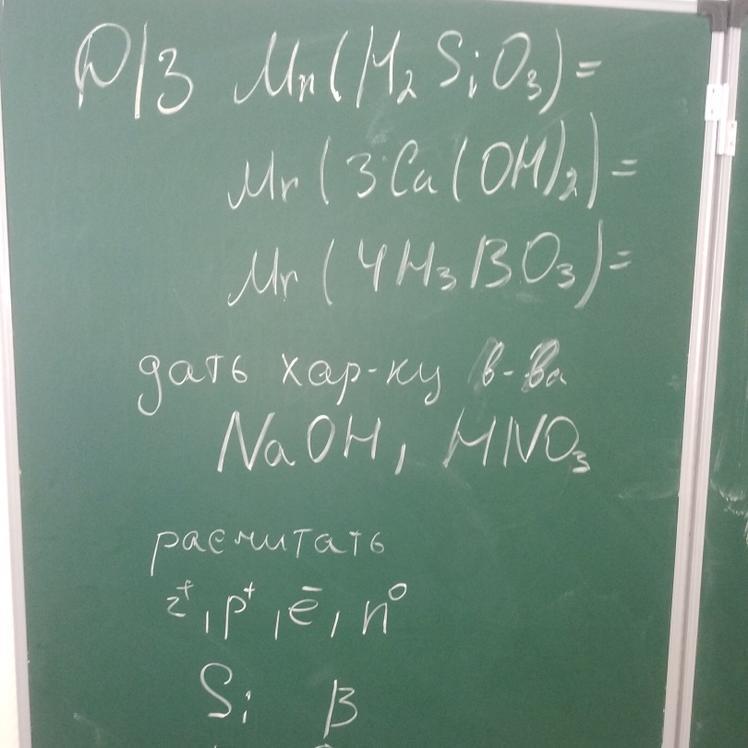 Д/З Mr(H₂SiO₃)=
Mr(3Ca(OH)₂)=
Mr(4H₃BO₃)=
дать хар-ку в-ва
NaOH, HNO₃
расчитать
z⁺, p⁺, ē, n⁰
Si B